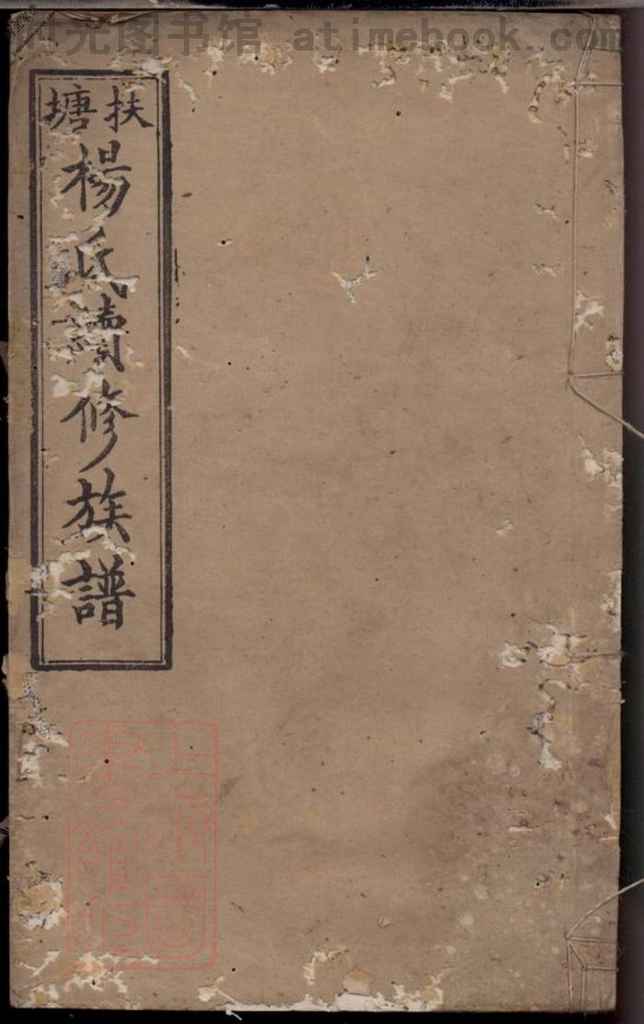 时光图书馆 atimebook.com
扶塘
楊氏續修族譜